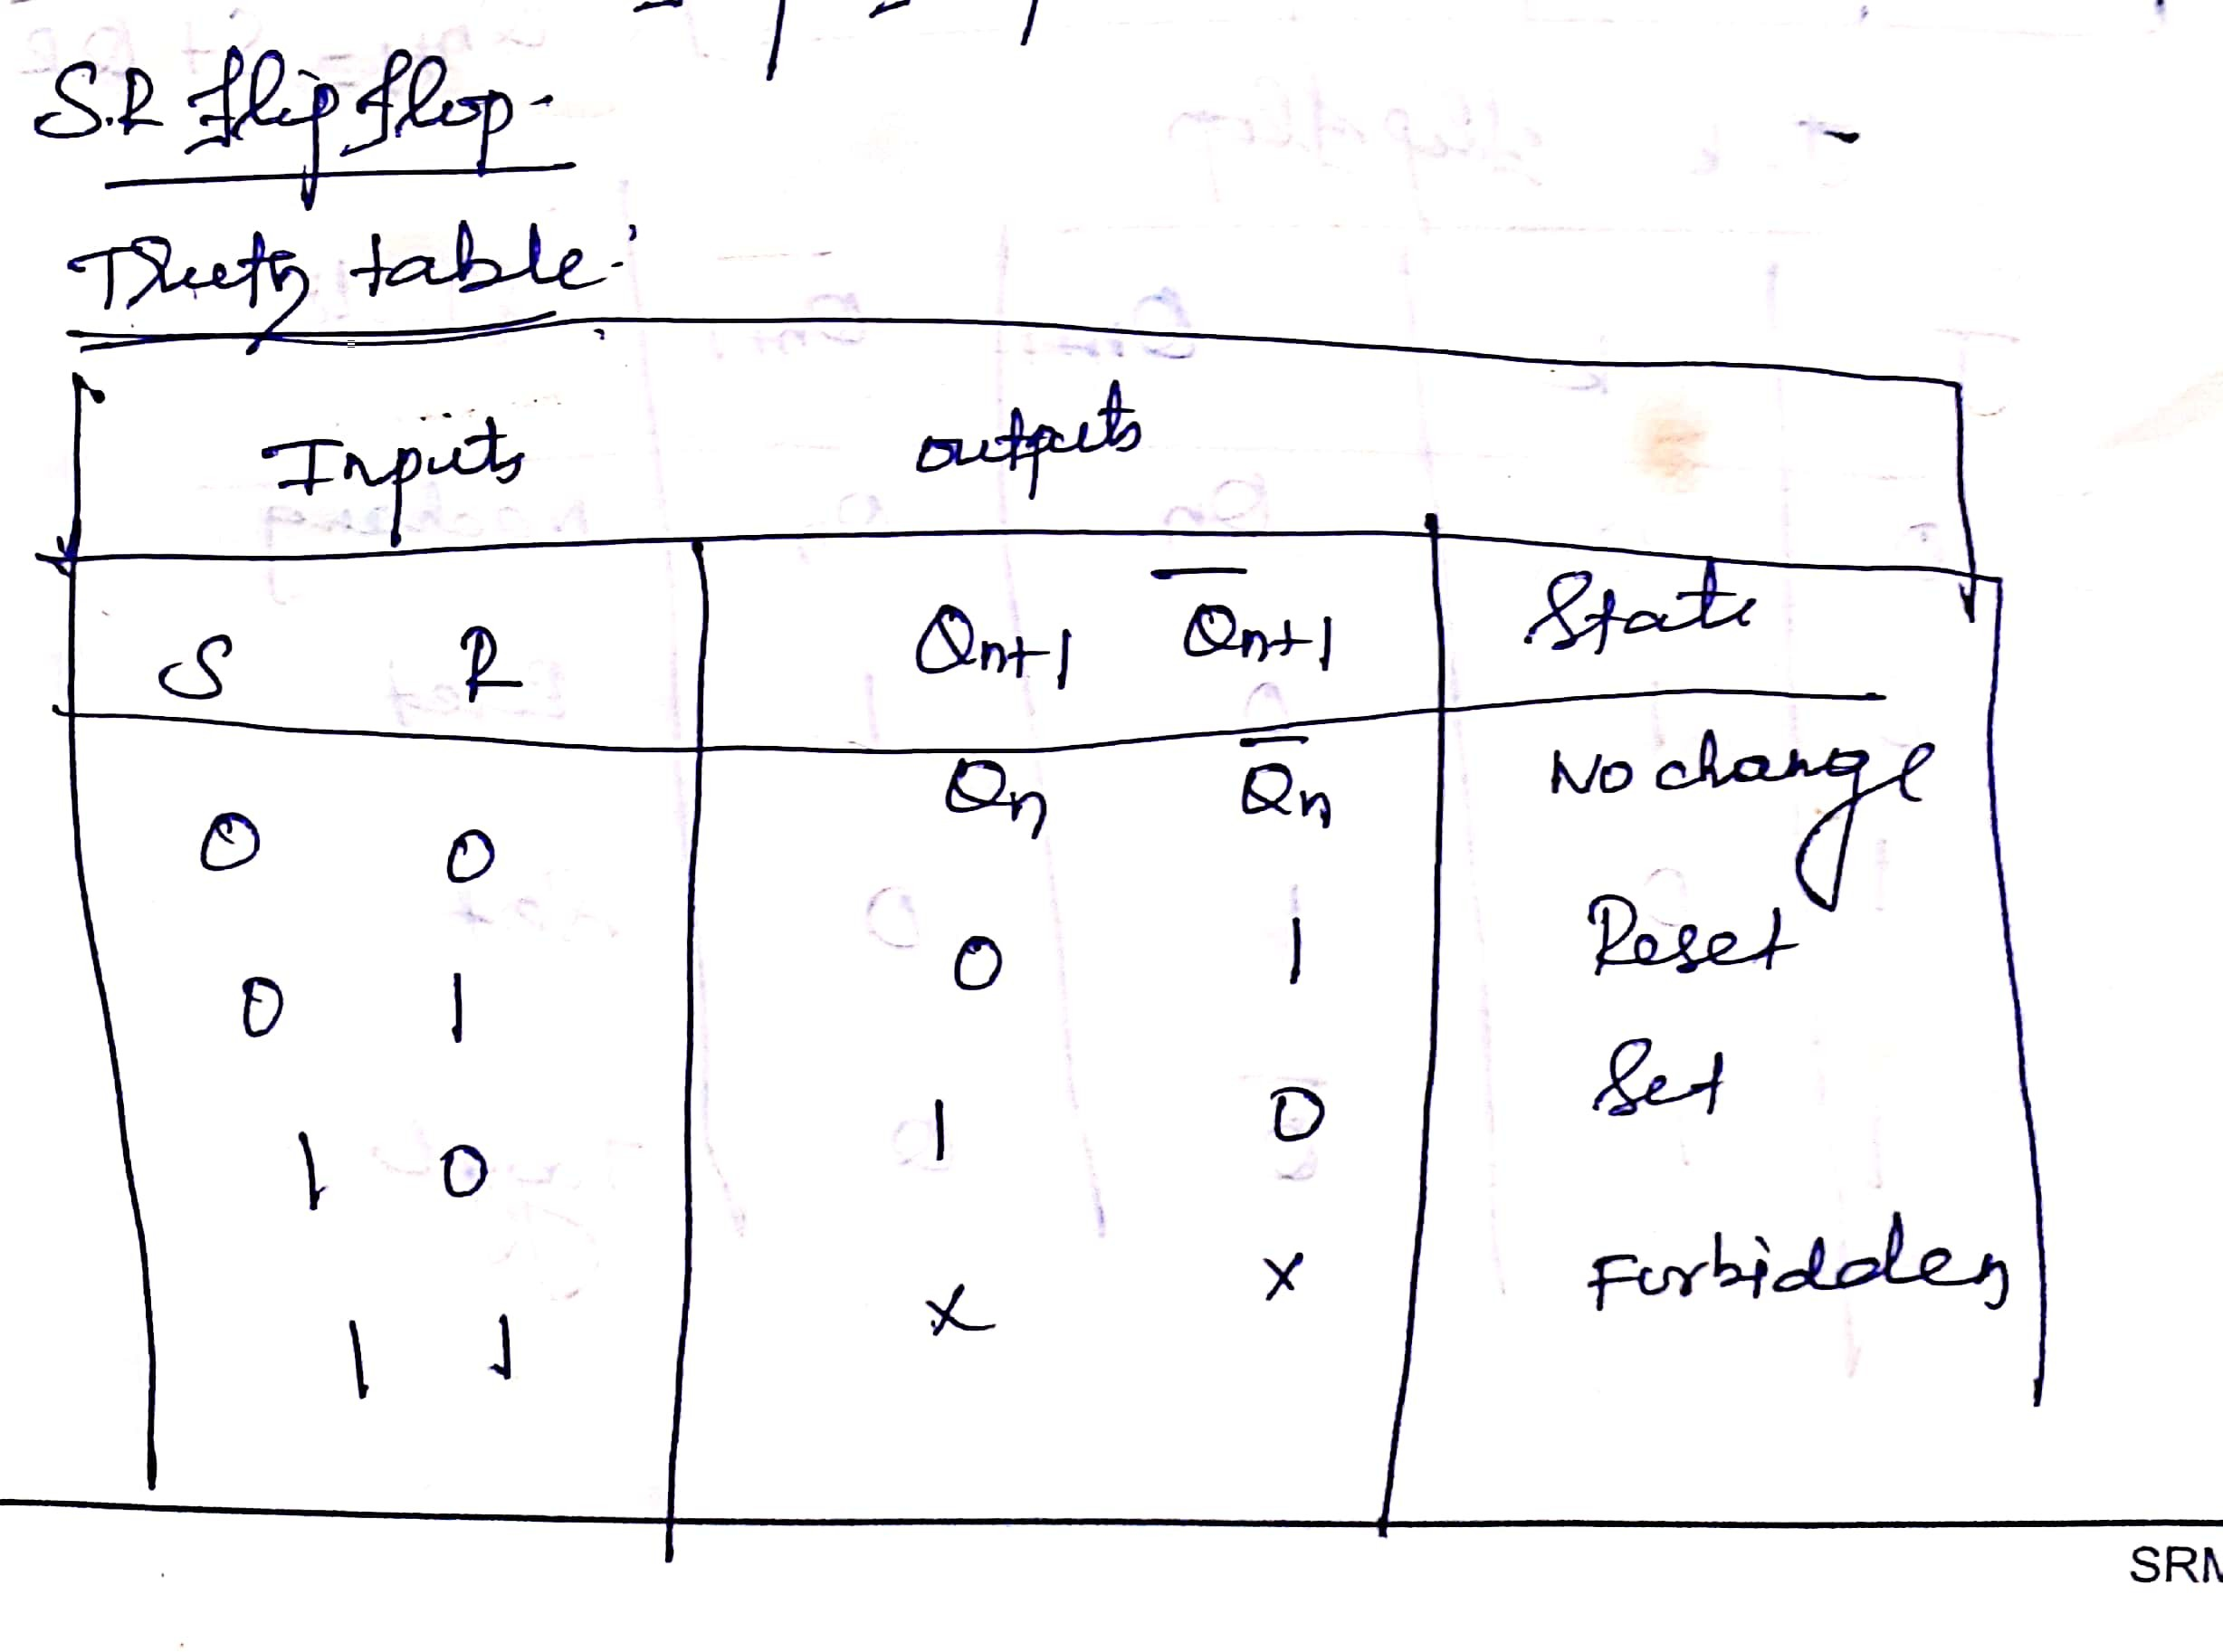 S.R flip flop-
Truth table:-
Inputs outputs
S R Qn+1 Q̅n+1 State
0 0 Qn Q̅n No change
0 1 0 1 Reset
1 0 1 0 Set
1 1 x x Forbidden
SRM